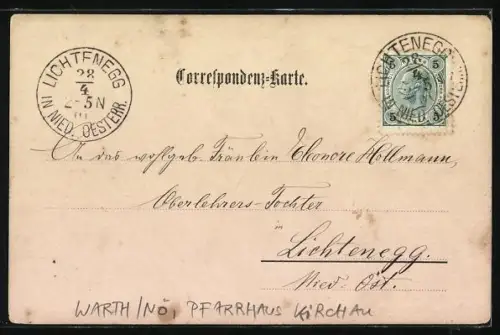 LICHTENEGG
28
4
2-5N
IN NIED. OESTERR.
Correspondenz-Karte.
LICHTENEGG
28
4
IN NIED. OESTERR.
5 5
5 5
An das wohlgeb. Fräulein Eleonore Hollmann,
Oberlehrers-Tochter
Lichtenegg.
Nied.-Öst.
WARTH/NÖ, PFARRHAUS KIRCHAU